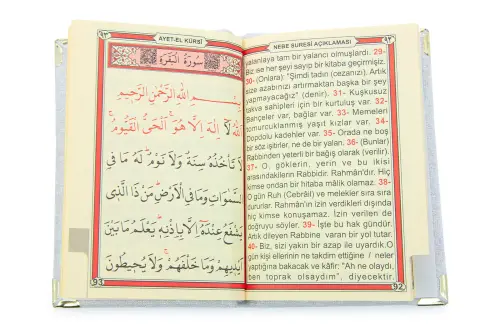 ٩٣
AYET-EL KÜRSİ
سُورَةُ الْبَقَرَةِ
بِسْمِ اللهِ الرَّحْمٰنِ الرَّحِيمِ
اَللهُ لَا اِلٰهَ اِلَّا هُوَ اَلْحَيُّ الْقَيُّومُ
لَا تَأْخُذُهُ سِنَةٌ وَلَا نَوْمٌ لَهُ مَا فِي
السَّمٰوَاتِ وَمَا فِي الْاَرْضِ مَنْ ذَا الَّذِي
يَشْفَعُ عِنْدَهُ اِلَّا بِاِذْنِهِ يَعْلَمُ مَا بَيْنَ
اَيْدِيهِمْ وَمَا خَلْفَهُمْ وَلَا يُحِيطُونَ
93
NEBE SURESİ AÇIKLAMASI
٩٢
yalanlaya tam bir yalancı olmuşlardı. 29-
Biz ise her şeyi sayıp bir kitaba geçirmişiz.
30- (Onlara): "Şimdi tadın (cezanızı). Artık
size azabınızı artırmaktan başka bir şey
yapmayacağız" (denir). 31- Kuşkusuz
takva sahipleri için bir kurtuluş var. 32-
Bahçeler var, bağlar var. 33- Memeleri
tomurcuklanmış yaşıt kızlar var. 34-
Dopdolu kadehler var. 35- Orada ne boş
bir söz işitirler, ne de bir yalan. 36- (Bunlar)
Rabbinden yeterli bir bağış olarak (verilir).
37- O, göklerin, yerin ve bu ikisi
arasındakilerin Rabbidir. Rahmân'dır. Hiç
kimse ondan bir hitaba mâlik olamaz. 38-
O gün Ruh (Cebrâil) ve melekler sıra sıra
dururlar. Rahmân'ın izin verdikleri dışında
hiç kimse konuşamaz. İzin verilen de
doğruyu söyler. 39- İşte bu hak gündür.
Artık dileyen Rabbine varan bir yol tutar.
40- Biz, sizi yakın bir azap ile uyardık.O
gün kişi ellerinin ne takdim ettiğine / neler
yaptığına bakacak ve kâfir: "Ah ne olaydı,
ben toprak olsaydım", diyecektir.
92